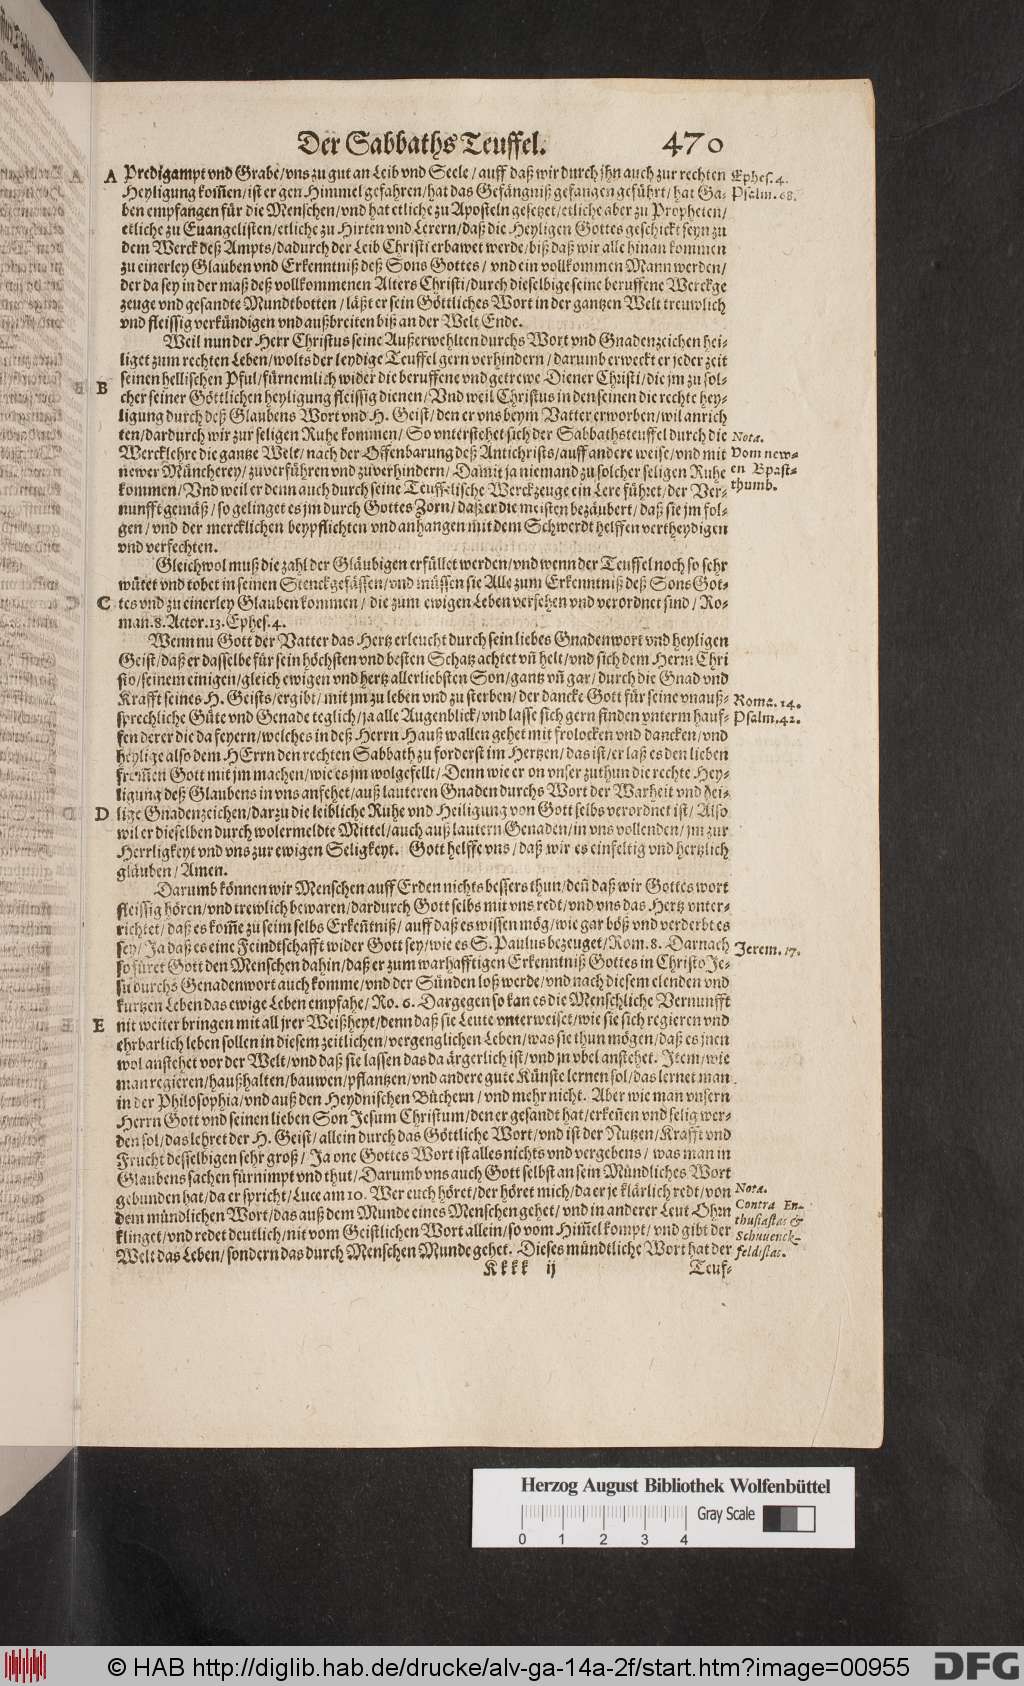 Der Sabbaths Teuffel. 470
A Predigampt vnd Grabe/vns zu gut an Leib vnd Seele/auff daß wir durch jhn auch zur rechten Ephes. 4.
Heyligung kom̃en/ist er gen Himmel gefahren/hat das Gefängniß gefangen geführt/hat Ga- Psalm. 68.
ben empfangen für die Menschen/vnd hat etliche zu Aposteln gesetzet/etliche aber zu Propheten/
etliche zu Euangelisten/etliche zu Hirten vnd Lerern/daß die Heyligen Gottes geschickt seyn zu
dem Werck deß Ampts/dadurch der Leib Christi erbawet werde/biß daß wir alle hinan kommen
zu einerley Glauben vnd Erkenntniß deß Sons Gottes/vnd ein vollkommen Mann werden/
der da sey in der maß deß vollkommenen Alters Christi/durch dieselbige seine beruffene Werckge
zeuge vnd gesandte Mundtbotten/läßt er sein Göttliches Wort in der gantzen Welt treuwlich
vnd fleissig verkündigen vnd außbreiten biß an der Welt Ende.
Weil nun der Herr Christus seine Außerwehlten durchs Wort vnd Gnadenzeichen hei-
liget zum rechten Leben/wolts der leydige Teuffel gern verhindern/darumb erweckt er jeder zeit
B seinen hellischen Pful/fürnemlich wider die beruffene vnd getrewe Diener Christi/die jm zu sol-
cher seiner Göttlichen heyligung fleissig dienen/Vnd weil Christus in den seinen die rechte hey-
ligung durch deß Glaubens Wort vnd H. Geist/den er vns beym Vatter erworben/wil anrich
ten/dardurch wir zur seligen Ruhe kommen/So vnterstehet sich der Sabbathsteuffel durch die Nota.
Wercklehre die gantze Welt/nach der Offenbarung deß Antichrists/auff andere weise/vnd mit Vom new-
newer Müncherey/zuverführen vnd zuverhindern/Damit ja niemand zu solcher seligen Ruhe en Bpast-
kommen/Vnd weil er denn auch durch seine Teuffelische Werckzeuge ein Lere führet/der Ver- thumb.
nunfft gemäß/so gelinget es jm durch Gottes Zorn/daß er die meisten bezäubert/daß sie jm fol-
gen/vnd der mercklichen beypflichten vnd anhangen mit dem Schwerdt helffen vertheydigen
vnd verfechten.
Gleichwol muß die zahl der Gläubigen erfüllet werden/vnd wenn der Teuffel noch so sehr
wütet vnd tobet in seinen Stenckgefässen/vnd müssen sie Alle zum Erkenntniß deß Sons Got-
C tes vnd zu einerley Glauben kommen/die zum ewigen Leben versehen vnd verordnet sind/Ro-
man. 8. Actor. 13. Ephes. 4.
Wenn nu Gott der Vatter das Hertz erleucht durch sein liebes Gnadenwort vnd heyligen
Geist/daß er dasselbe für sein höchsten vnd besten Schatz achtet vñ helt/vnd sich dem Herrn Chri
sto/seinem einigen/gleich ewigen vnd hertz allerliebsten Son/gantz vñ gar/durch die Gnad vnd
Krafft seines H. Geists/ergibt/mit jm zu leben vnd zu sterben/der dancke Gott für seine vnauß- Roma. 14.
sprechliche Güte vnd Genade teglich/ja alle Augenblick/vnd lasse sich gern finden vnterm hauf- Psalm. 42.
fen derer die da feyern/welches in deß Herrn Hauß wallen gehet mit frolocken vnd dancken/vnd
heylige also dem HErrn den rechten Sabbath zu forderst im Hertzen/das ist/er laß es den lieben
from̃en Gott mit jm machen/wie es jm wolgefellt/Denn wie er on vnser zuthun die rechte Hey-
ligung deß Glaubens in vns anfehet/auß lauteren Gnaden durchs Wort der Warheit vnd hei-
D lige Gnadenzeichen/darzu die leibliche Ruhe vnd Heiligung von Gott selbs verordnet ist/Also
wil er dieselben durch wolermeldte Mittel/auch auß lautern Genaden/in vns vollenden/jm zur
Herrligkeyt vnd vns zur ewigen Seligkeyt. Gott helffe vns/daß wir es einfeltig vnd hertzlich
gläuben/Amen.
Darumb können wir Menschen auff Erden nichts bessers thun/deñ daß wir Gottes wort
fleissig hören/vnd trewlich bewaren/dardurch Gott selbs mit vns redt/vnd vns das Hertz vnter-
richtet/daß es kom̃e zu seim selbs Erkeñtniß/auff daß es wissen mög/wie gar böß vnd verderbt es
sey/Ja daß es eine Feindtschafft wider Gott sey/wie es S. Paulus bezeuget/Rom. 8. Darnach Jerem. 17.
so füret Gott den Menschen dahin/daß er zum warhafftigen Erkenntniß Gottes in Christo Je-
su durchs Genadenwort auch komme/vnd der Sünden loß werde/vnd nach diesem elenden vnd
kurtzen Leben das ewige Leben empfahe/Ro. 6. Dargegen so kan es die Menschliche Vernunfft
E nit weiter bringen mit all jrer Weißheyt/denn daß sie Leute vnterweiset/wie sie sich regieren vnd
ehrbarlich leben sollen in diesem zeitlichen/vergenglichen Leben/was sie thun mögen/daß es jnen
wol anstehet vor der Welt/vnd daß sie lassen das da ärgerlich ist/vnd jn vbel anstehet. Item/wie
man regieren/haußhalten/bauwen/pflantzen/vnd andere gute Künste lernen sol/das lernet man
in der Philosophia/vnd auß den Heydnischen Büchern/vnd mehr nicht. Aber wie man vnsern
Herrn Gott vnd seinen lieben Son Jesum Christum/den er gesandt hat/erkeñen vnd selig wer-
den sol/das lehret der H. Geist/allein durch das Göttliche Wort/vnd ist der Nutzen/Krafft vnd
Frucht desselbigen sehr groß/Ja one Gottes Wort ist alles nichts vnd vergebens/was man in
Glaubens sachen fürnimpt vnd thut/Darumb vns auch Gott selbst an sein Mündliches Wort
gebunden hat/da er spricht/Luce am 10. Wer euch höret/der höret mich/da er je klärlich redt/von Nota.
dem mündlichen Wort/das auß dem Munde eines Menschen gehet/vnd in anderer Leut Ohrn Contra En-
klinget/vnd redet deutlich/nit vom Geistlichen Wort allein/so vom Him̃el kompt/vnd gibt der thusiastas &
Welt das Leben/sondern das durch Menschen Munde gehet. Dieses mündtliche Wort hat der Schuuenck-
feldistas.
Kkkk ij Teuf-
Herzog August Bibliothek Wolfenbüttel
Gray Scale
0 1 2 3 4
© HAB http://diglib.hab.de/drucke/alv-ga-14a-2f/start.htm?image=00955 DFG